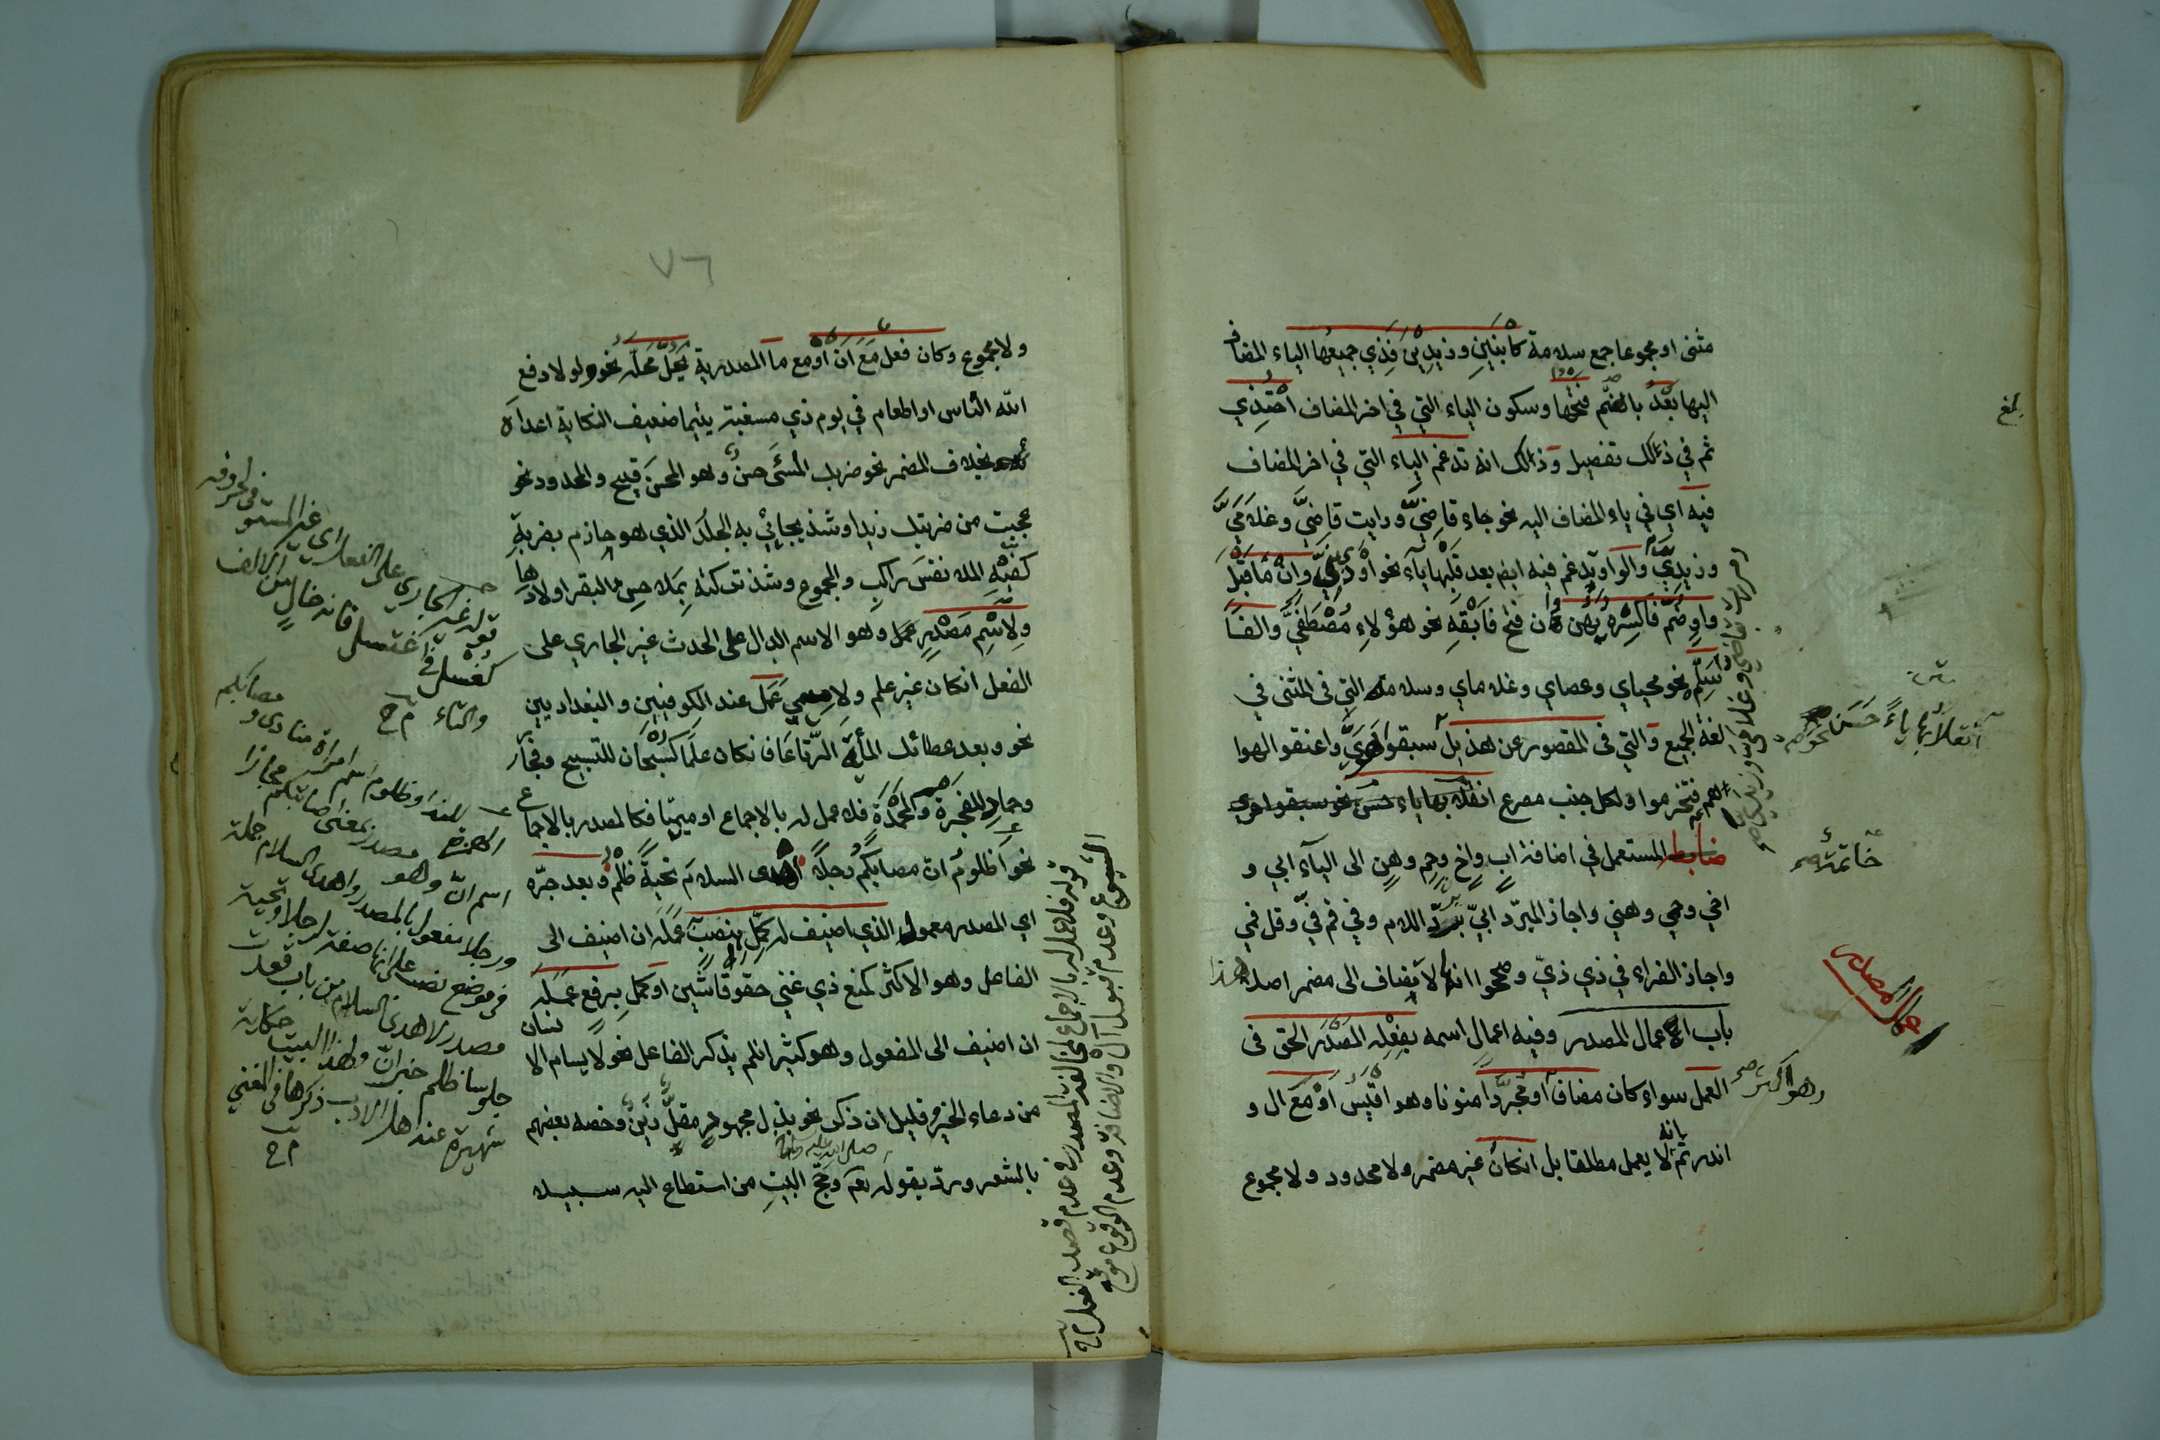 مثنى او مجموعا جمع سلامة كابنين وزيدين فذي جميعها الياء المضاف
اليها بعد بالضم فتحها وسكون الياء التي في اخر المضاف احتذي
ثم في ذلك تفصيل وذلك انه تدغم الياء التي في اخر المضاف
فيه اي في ياء المضاف اليه نحو جاء قاضيّ ورايت قاضيّ وغلاميّ
وزيديّ والواو يدغم فيه ايض بعد قلبها ياء نحو اوديّ وان ما قبل
واو ضم فاكسره يهن وان فتح فابقه نحو هؤلاء مصطفيّ والفا
سلم نحو محياي وعصاي وغلاماي وسلامة التي في المثنى في
لغة الجميع والتي في المقصور عن هذيل سبقوا هويّ واعنقوا الهوا
هم فتخرموا ولكل جنب مصرع انقلابها ياء حسن نحو سبقوا هوي
ضابط المستعمل في اضافة اب واخ وحم وهن الى الياء ابي و
اخي وحمي وهني واجاز المبرد ابيّ برد اللام وفي فم فيّ وقل فمي
واجاز الفراء في ذي ذيّ وصححوا انها لا يضاف الى مضمر اصلا هذا
باب اعمال المصدر وفيه اعمال اسمه بفعله المصدر الحق في
العمل سواء كان مضاف او مجردا منونا وهو اقيس او مع ال و
اندر ثم انه لا يعمل مطلقا بل ان كان غير مضمر ولا محدود ولا مجموع
بلغ
انقلابها ياءً حسن نحو
خاتمة
اعمال المصدر
وهو اكثر صح
٧٦
ولا مجموع وكان فعل مع ان او مع ما المصدرية يحل محله نحو ولولا دفع
الله الناس او اطعام في يوم ذي مسغبة يتيما ضعيف النكاية اعداءه
بخلاف المضمر نحو ضربك المسئ حسن وهو المحسن قبيح والمحدود نحو
عجبت من ضربتك زيدا وشذ يحايي به الجلد الذي هو حازم بضربة
كفيه الملا نفس راكب والمجموع وشذ تركته بملاحس البقر اولادها
ولاسم مصدر عمل وهو الاسم الدال على الحدث غير الجاري على
الفعل ان كان غير علم ولا ميمي عمل عند الكوفيين والبغداديين
نحو وبعد عطائك المأية الرتاعا فان كان علما كسبحان للتسبيح وفجار
وحماد للفجرة والمحمدة فلا عمل له بالاجماع او ميميا فكالمصدر بالاجماع
نحو اظلوم ان مصابكم رجلا اهدى السلام تحية ظلم وبعد جره
اي المصدر معموله الذي اضيف له كمل بنصب عمله ان اضيف الى
الفاعل وهو الاكثر كمنع ذي غنى حقوقا شين او كمل برفع عمله
ان اضيف الى المفعول وهو كثير ان لم يذكر الفاعل نحو لا يسام الانسان
من دعاء الخير وقليل ان ذكر نحو بذل مجهود مقل زين وخصه بعضهم
بالشعر ورد بقوله صلى الله عليه وحج البيت من استطاع اليه سبيلا
قوله فلا عمل له بالاجماع لمخالفة المصدر في عدم قصد
الشيوع وعدم قبول ال والاضافة وعدم الوقوع موقع الفعل م ح
قوله غير الجاري على الفعل اي غير المستوفى لحروفه
كغسل في اغتسل فانه خال من الالف
والتاء م ح
الهمزة للنداء وظلوم اسم امراة منادى ومصابكم
اسم ان وهو مصدر بمعنى اصابتكم مجازا
ورجلا مفعول بالمصدر واهدى السلام جملة
في موضع نصب على انها صفة لرجلا وتحية
مصدر لاهدى السلام من باب قعدت
جلوسا وظلم خبر ان ولهذا البيت حكاية
شهيرة عند اهل الادب ذكرها في المغني
م ح